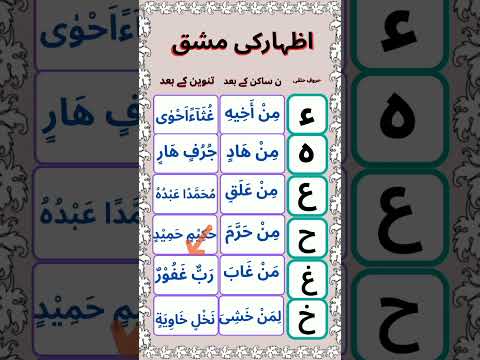 اظہارکی مشق
حروف حلقی ن ساکن کے بعد تنوین کے بعد
ء مِنْ أَخِيهِ غُثَآءًاَحْوٰى
ہ مِنْ هَادٍ جُرُفٍ هَارٍ
ع مِنْ عَلَقٍ مُحَمَّدًا عَبْدُهُ
ح مِنْ حَرَّمَ حَكِيْمٍ حَمِيْدٍ
غ مَنْ غَابَ رَبٌّ غَفُوْرٌ
خ لِمَنْ خَشِىَ نَخْلٍ خَاوِيَةٍ